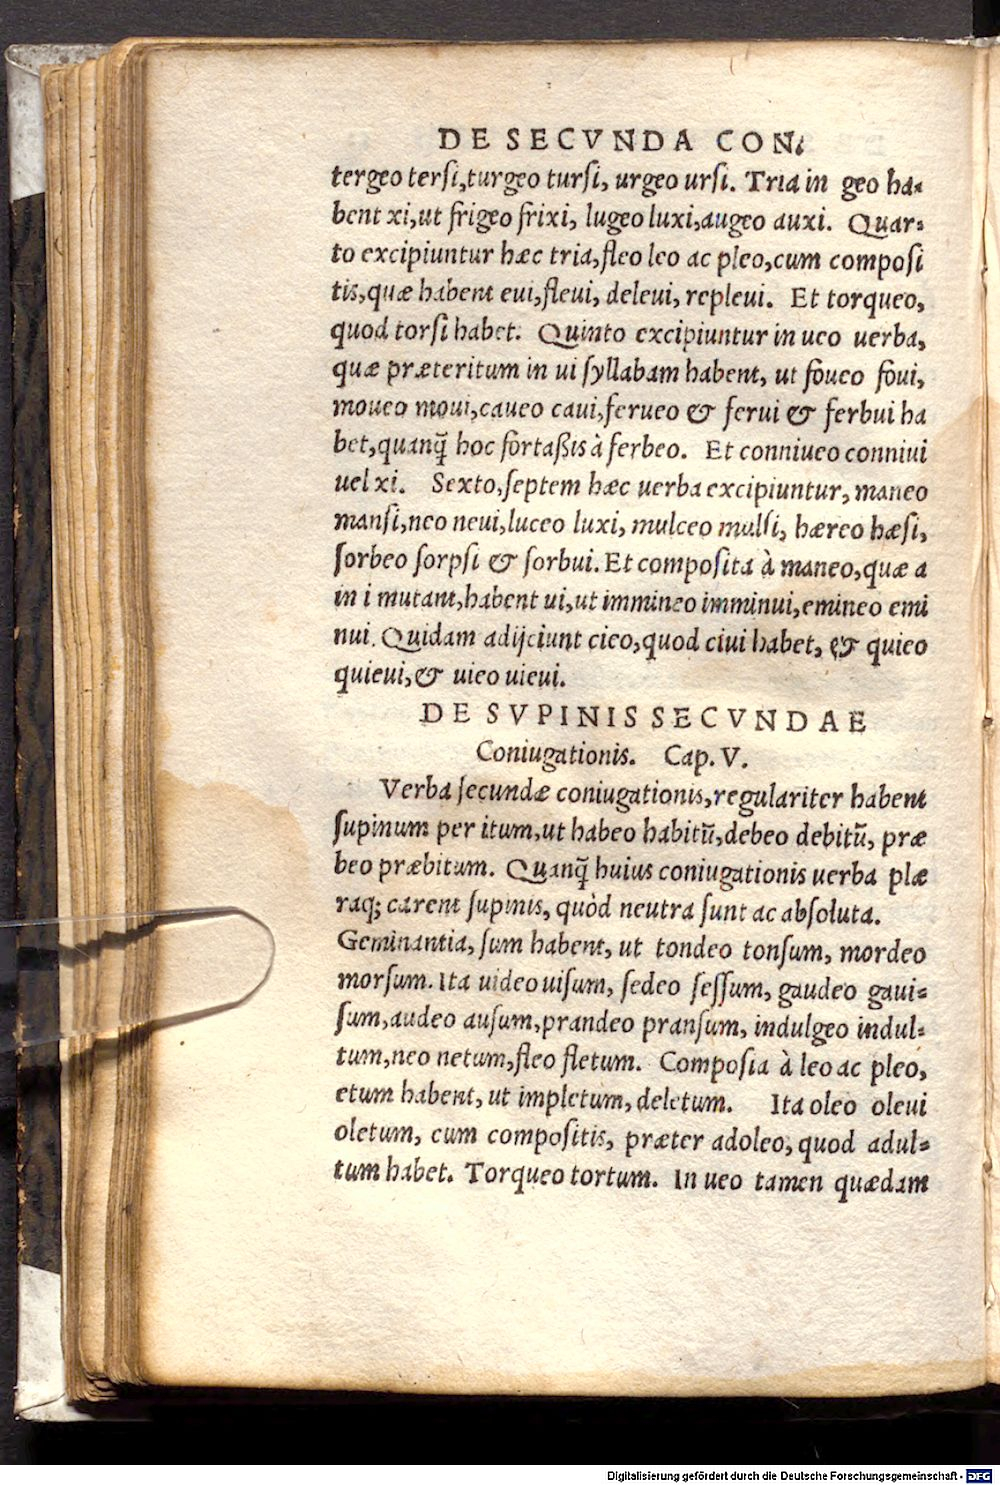 DE SECVNDA CON⸗
tergeo terſi,turgeo turſi, urgeo urſi. Tria in geo ha⸗
bent xi,ut frigeo frixi, lugeo luxi,augeo auxi. Quar⸗
to excipiuntur hæc tria,fleo leo ac pleo,cum compoſi
tis,quæ habent eui,fleui, deleui, repleui. Et torqueo,
quod torſi habet. Quinto excipiuntur in ueo uerba,
quæ præteritum in ui ſyllabam habent, ut foueo foui,
moueo moui,caueo caui,ferueo & ferui & ferbui ha
bet,quanq̃ hoc fortaßis à ferbeo. Et conniueo conniui
uel xi. Sexto,ſeptem hæc uerba excipiuntur, maneo
manſi,neo neui,luceo luxi, mulceo mulſi, hæreo hæſi,
ſorbeo ſorpſi & ſorbui. Et compoſita à maneo,quæ a
in i mutant,habent ui,ut immineo imminui,emineo emi
nui. Quidam adijciunt cieo,quod ciui habet, & quieo
quieui,& uieo uieui.
DE SVPINIS SECVNDAE
Coniugationis. Cap. V.
Verba ſecundæ coniugationis,regulariter habent
ſupinum per itum,ut habeo habitũ,debeo debitũ, præ
beo præbitum. Quanq̃ huius coniugationis uerba plæ
raq; carent ſupinis, quòd neutra ſunt ac abſoluta.
Geminantia, ſum habent, ut tondeo tonſum, mordeo
morſum. Ita uideo uiſum, ſedeo ſeſſum, gaudeo gaui⸗
ſum,audeo auſum,prandeo pranſum, indulgeo indul⸗
tum,neo netum,fleo fletum. Compoſia à leo ac pleo,
etum habent, ut impletum, deletum. Ita oleo oleui
oletum, cum compoſitis, præter adoleo, quod adul⸗
tum habet. Torqueo tortum. In ueo tamen quædam
Digitalisierung gefördert durch die Deutsche Forschungsgemeinschaft - DFG